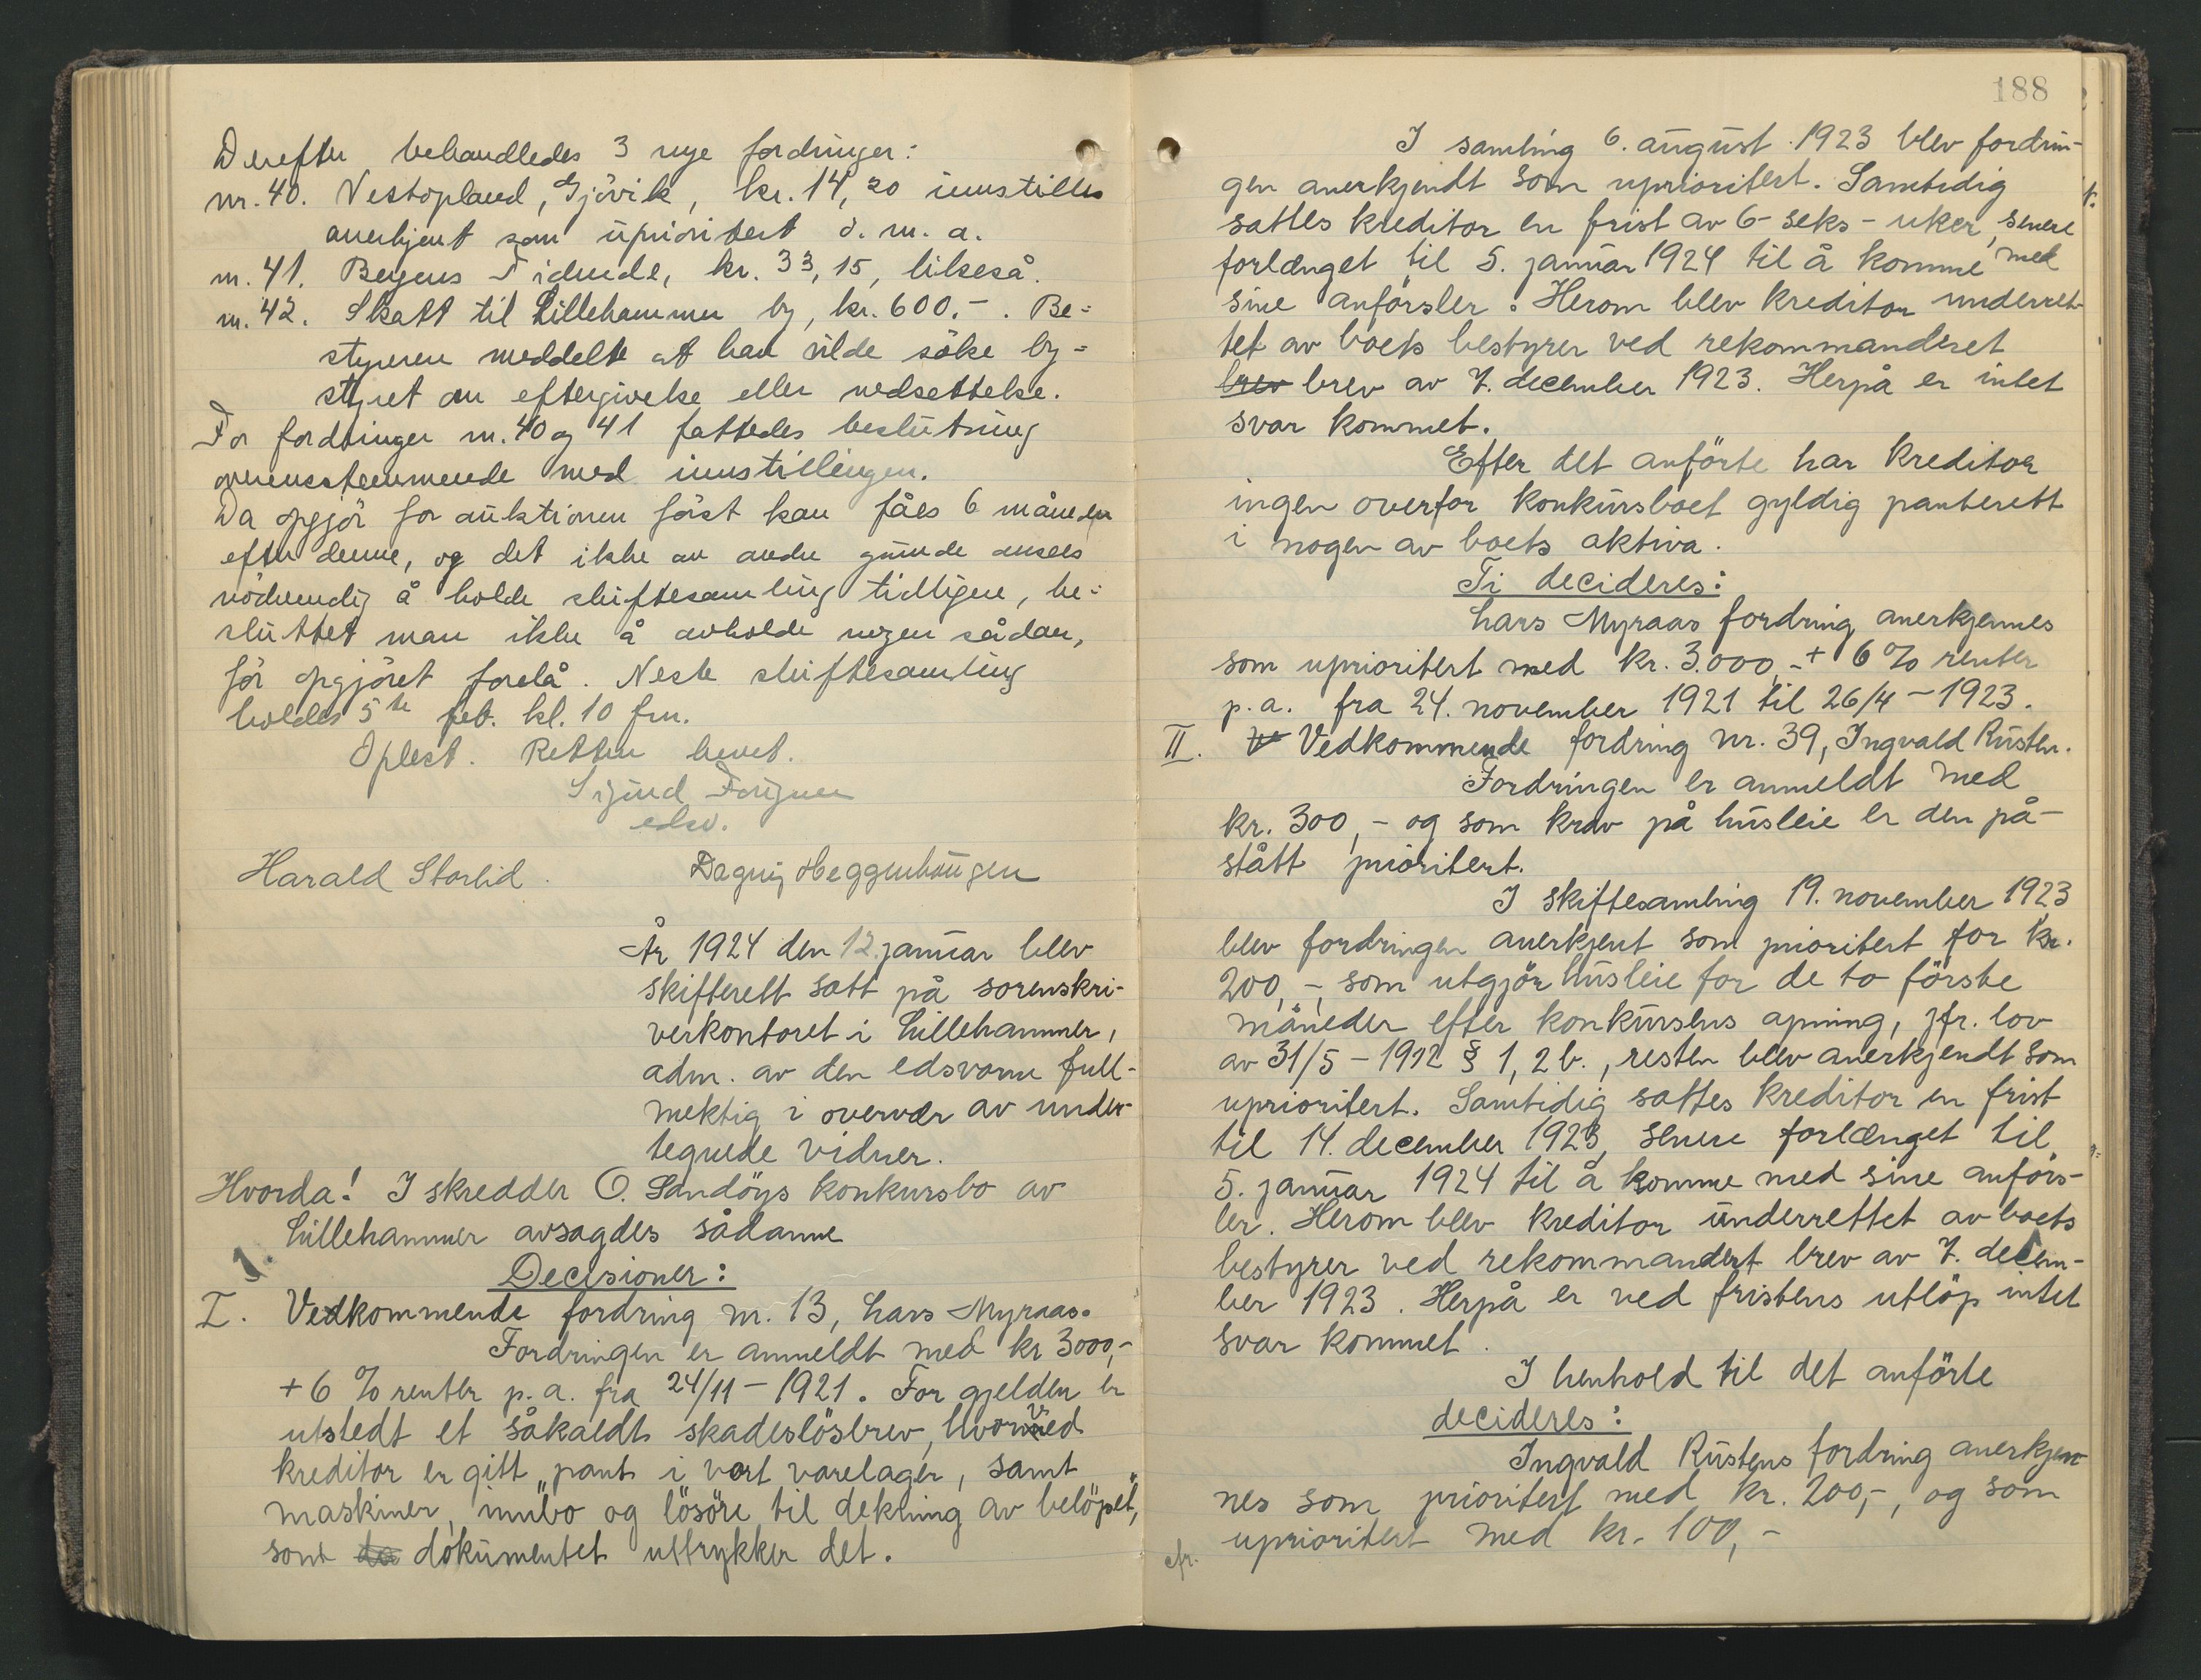 Derefter behandledes 3 nye fordringer:
nr. 40. Vestopland, Gjövik, kr. 14,20 innstilles
anerkjent som uprioritert d. m. a.
nr. 41. Bergens Tidende, kr. 33,15, likeså.
nr. 42. Skatt til Lillehammer by, kr. 600.- . Be=
styreren meddelte at han vilde söke by=
styret om eftergivelse eller nedsettelse.
For fordringer nr. 40 og 41 fattedes beslutning
overensstemmende med innstillingen.
Da opgjör for auktionen först kan fåes 6 måneder
efter denne, og det ikke av andre grunde ansees
nödvendig å holde skiftesamling tidligere, be=
sluttet man ikke å avholde nogen sådan,
för opgjöret forelå. Neste skiftesamling
holdes 5te feb. kl. 10 fm.
Oplest. Retten hevet.
Sigurd
edsv.
Harald Storlid. Dagny Heggenhougen
År 1924 den 12. januar blev
skifterett satt på sorenskri-
verkontoret i Lillehammer,
adm. av den edsvorne full-
mektig i overvær av under-
tegnede vidner.
Hvorda! I skredder O. Sandöys konkursbo av
Lillehammer avsagdes sådanne
1.
Decisioner:
I. Vedkommende fordring nr. 13, Lars Myraas.
Fordringen er anmeldt med kr 3000,-
+ 6 % renter p. a. fra 24/11 - 1921. For gjelden er
utstedt et såkaldt skadeslösbrev, hvorved
kreditor er gitt „pant i vort varelager, samt
maskiner, innbo og lösöre til dekning av belöpet",
som da dokumentet uttrykker det.
188
I samling 6. august 1923 blev fordrin-
gen anerkjendt som uprioritert. Samtidig
sattes kreditor en frist av 6- seks - uker, senere
forlænget til 5. januar 1924 til å komme med
sine anförsler. Herom blev kreditor underret-
tet av boets bestyrer ved rekommanderet
brev brev av 7. december 1923. Herpå er intet
svar kommet.
Efter det anförte har kreditor
ingen overfor konkursboet gyldig panterett
i nogen av boets aktiva.
Ti decideres:
Lars Myraas fordring anerkjennes
som uprioritert med kr. 3.000,- + 6 % renter
p. a. fra 24. november 1921 til 26/4 - 1923.
II. Ve Vedkommende fordring nr. 39, Ingvald Rusten.
Fordringen er anmeldt med
kr. 300,- og som krav på husleie er den på-
stått prioritert.
I skiftesamling 19. november 1923
blev fordringen anerkjent som prioritert for kr.
200,-, som utgjör husleie for de to förste
måneder efter konkursens apning, jfr. lov
av 31/5 - 1912 § 1, 2 b., resten blev anerkjendt som
uprioritert. Samtidig sattes kreditor en frist
til 14. december 1923, senere forlænget til
5. januar 1924 til å komme med sine anförs-
ler. Herom blev kreditor underrettet av boets
bestyrer ved rekommandert brev av 7. decem-
ber 1923. Herpå er ved fristens utlöp intet
svar kommet.
I henhold til det anförte
decideres:
Ingvald Rustens fordring anerkjen-
nes som prioritert med kr. 200,-, og som
uprioritert med kr. 100,-
cfr.